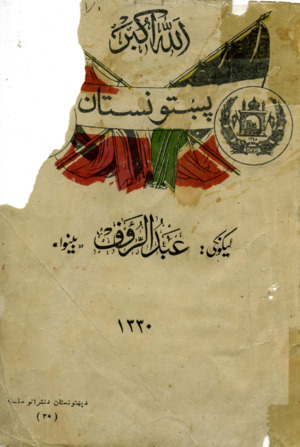 الله اکبر
پښتونستان
لیکونکی: عبدالرؤوف «بینوا»
۱۳۳۰
دپښتونستان دنشراتو سلسله
(۲۰)